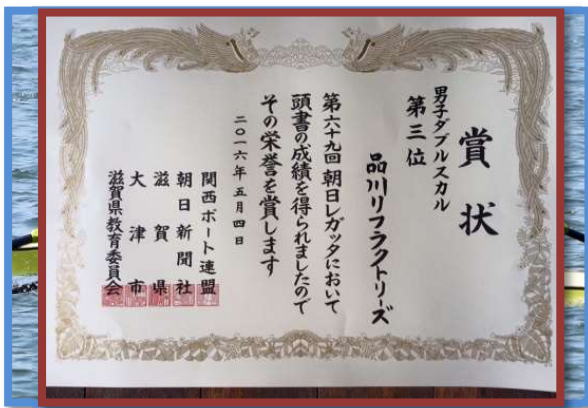 賞状
男子ダブルスカル
第三位
品川リフラクトリーズ
第六十九回 朝日レガッタにおいて
頭書の成績を得られましたので
その栄誉を賞します
二〇一六年五月四日
関西ボート連盟
朝日新聞社
滋賀県
大津市
滋賀県教育委員会